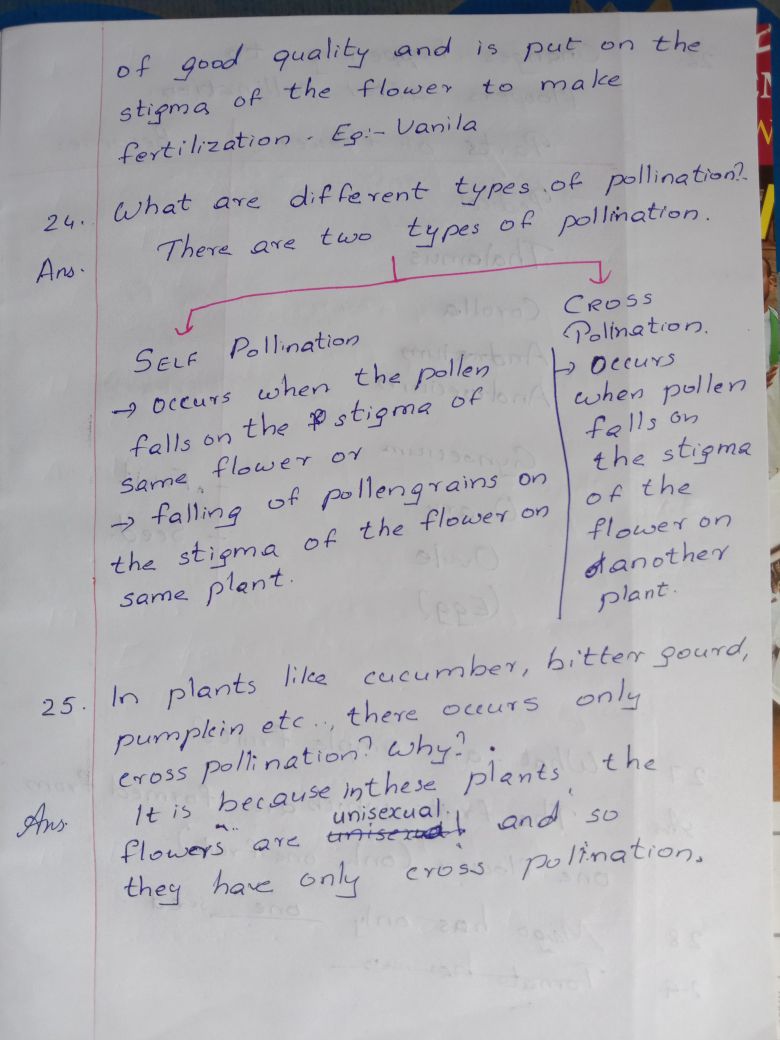 of good quality and is put on the
stigma of the flower to make
fertilization. Eg:- Vanila
24. What are different types of pollination?
Ans. There are two types of pollination.
SELF Pollination
→ occurs when the pollen
falls on the stigma of
same flower or
→ falling of pollengrains on
the stigma of the flower on
same plant.
CROSS
Pollination.
→ Occurs
when pollen
falls on
the stigma
of the
flower on
another
plant.
25. In plants like cucumber, bitter gourd,
pumpkin etc.., there occurs only
cross pollination? Why?
Ans. It is because inthese plants, the
flowers are unisexual. and so
they have only cross pollination.